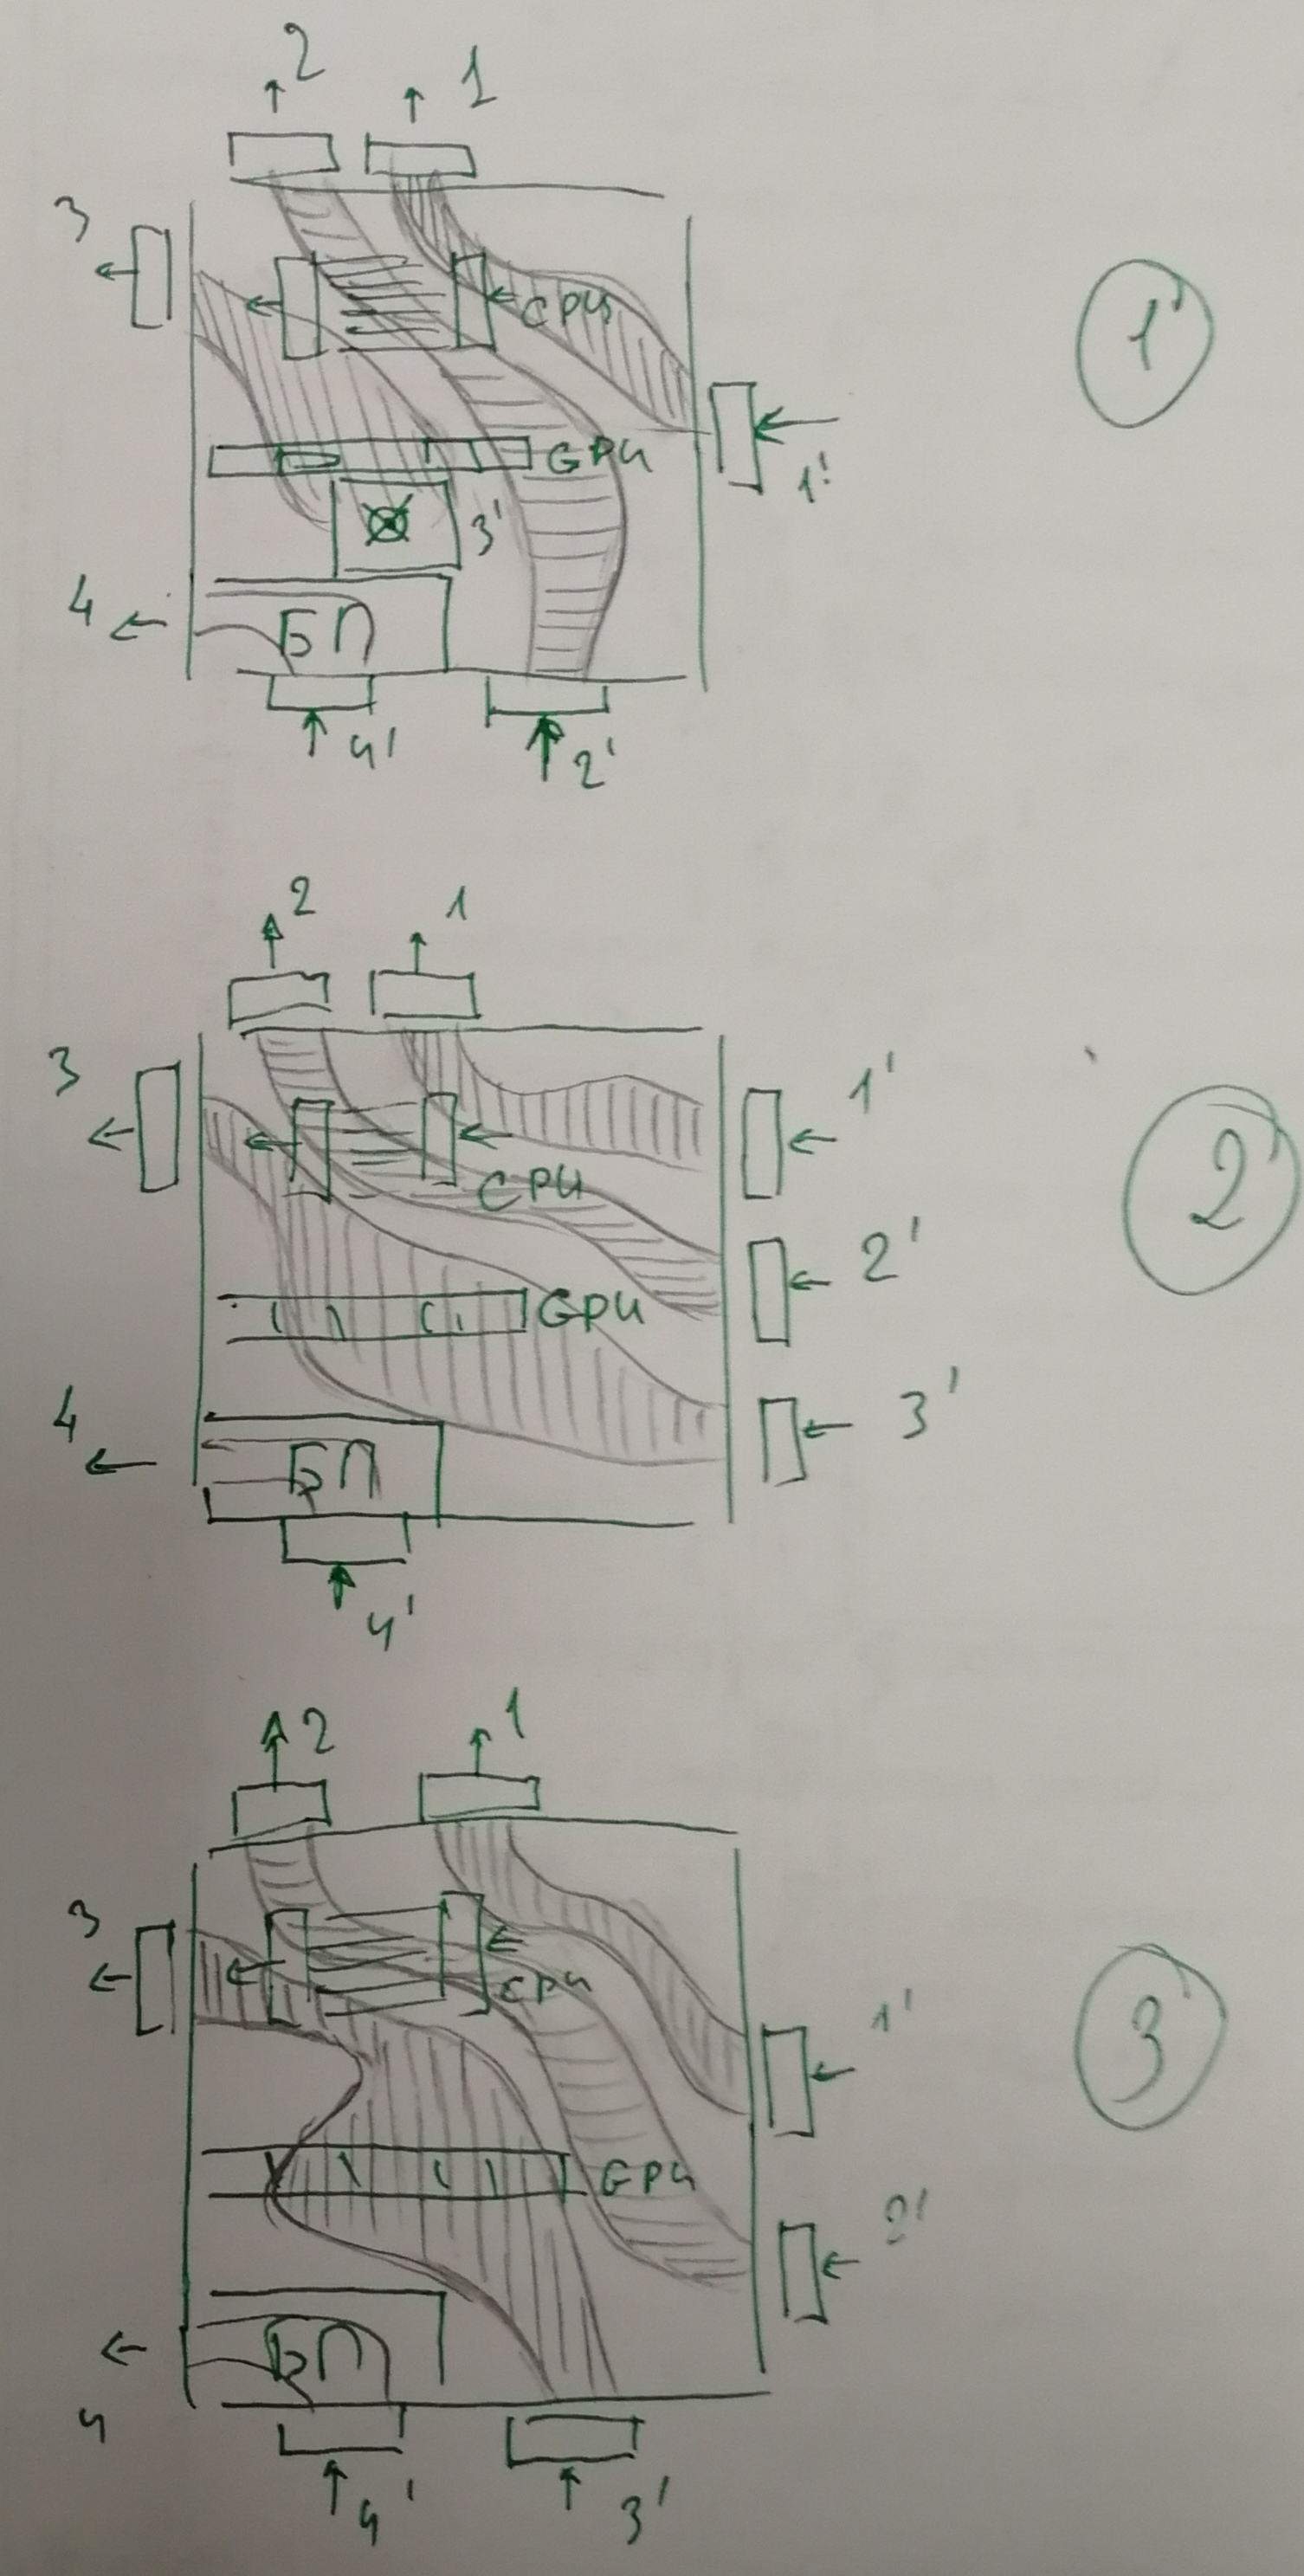 2 1
3
CPU
1'
1'
GPU
3'
4
БП
4' 2'
2 1
3
1'
CPU
2
2'
GPU
3'
4
БП
4'
2 1
3
CPU
1'
3
GPU
2'
БП
4
4' 3'